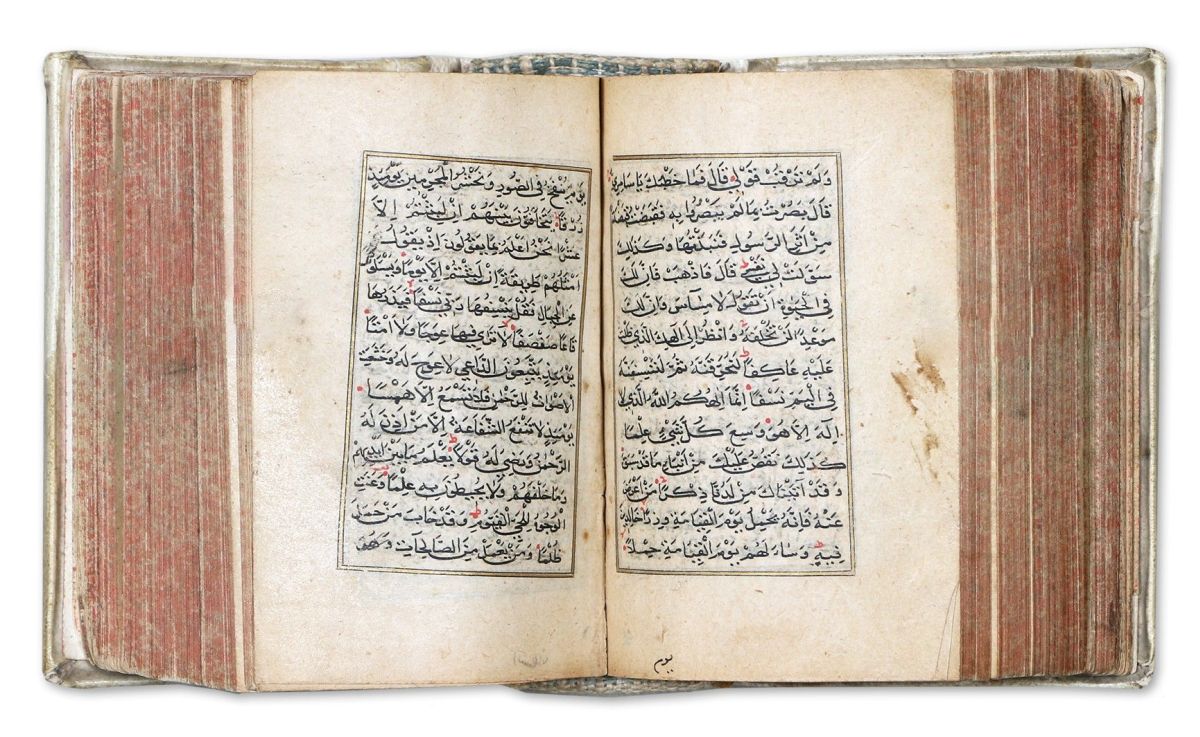 وَلَمْ تَرْقُبْ قَوْلِي قَالَ فَمَا خَطْبُكَ يَا سَامِرِيُّ
قَالَ بَصُرْتُ بِمَا لَمْ يَبْصُرُوا بِهِ فَقَبَضْتُ قَبْضَةً
مِنْ أَثَرِ الرَّسُولِ فَنَبَذْتُهَا وَكَذَلِكَ
سَوَّلَتْ لِي نَفْسِي قَالَ فَاذْهَبْ فَإِنَّ لَكَ
فِي الْحَيٰوةِ أَنْ تَقُولَ لَا مِسَاسَ وَإِنَّ لَكَ
مَوْعِدًا لَنْ تُخْلَفَهُ وَانْظُرْ إِلَى إِلَهِكَ الَّذِي ظَلْتَ
عَلَيْهِ عَاكِفًا لَنُحَرِّقَنَّهُ ثُمَّ لَنَنْسِفَنَّهُ
فِي الْيَمِّ نَسْفًا إِنَّمَا إِلَهُكُمُ اللَّهُ الَّذِي لَا
إِلَهَ إِلَّا هُوَ وَسِعَ كُلَّ شَيْءٍ عِلْمًا
كَذَلِكَ نَقُصُّ عَلَيْكَ مِنْ أَنْبَاءِ مَا قَدْ سَبَقَ
وَقَدْ آتَيْنَاكَ مِنْ لَدُنَّا ذِكْرًا مَنْ أَعْرَضَ
عَنْهُ فَإِنَّهُ يَحْمِلُ يَوْمَ الْقِيَامَةِ وِزْرًا خَالِدِينَ
فِيهِ وَسَاءَ لَهُمْ يَوْمَ الْقِيَامَةِ حِمْلًا
يوم
يَوْمَ يُنْفَخُ فِي الصُّورِ وَنَحْشُرُ الْمُجْرِمِينَ يَوْمَئِذٍ
زُرْقًا يَتَخَافَتُونَ بَيْنَهُمْ إِنْ لَبِثْتُمْ إِلَّا
عَشْرًا نَحْنُ أَعْلَمُ بِمَا يَقُولُونَ إِذْ يَقُولُ
أَمْثَلُهُمْ طَرِيقَةً إِنْ لَبِثْتُمْ إِلَّا يَوْمًا وَيَسْأَلُونَكَ
عَنِ الْجِبَالِ فَقُلْ يَنْسِفُهَا رَبِّي نَسْفًا فَيَذَرُهَا
قَاعًا صَفْصَفًا لَا تَرَى فِيهَا عِوَجًا وَلَا أَمْتًا
يَوْمَئِذٍ يَتَّبِعُونَ الدَّاعِيَ لَا عِوَجَ لَهُ وَخَشَعَتِ
الْأَصْوَاتُ لِلرَّحْمٰنِ فَلَا تَسْمَعُ إِلَّا هَمْسًا
يَوْمَئِذٍ لَا تَنْفَعُ الشَّفَاعَةُ إِلَّا مَنْ أَذِنَ لَهُ
الرَّحْمٰنُ وَرَضِيَ لَهُ قَوْلًا يَعْلَمُ مَا بَيْنَ أَيْدِيهِمْ
وَمَا خَلْفَهُمْ وَلَا يُحِيطُونَ بِهِ عِلْمًا وَعَنَتِ
الْوُجُوهُ لِلْحَيِّ الْقَيُّومِ وَقَدْ خَابَ مَنْ حَمَلَ
ظُلْمًا وَمَنْ يَعْمَلْ مِنَ الصَّالِحَاتِ وَهُوَ